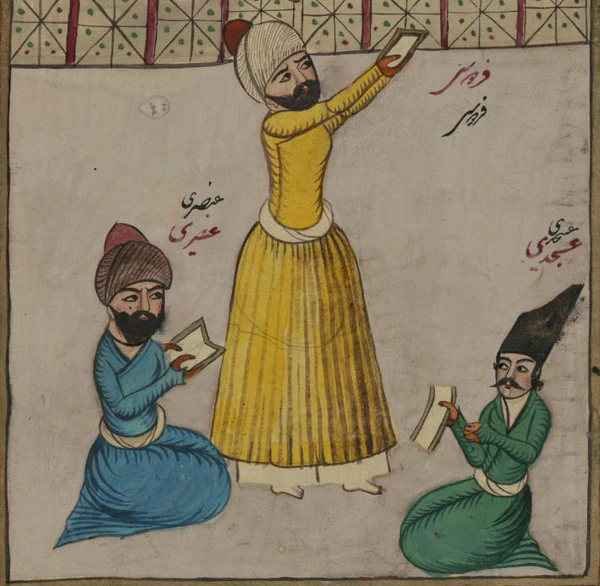 فردوسی
فردوسی
عنصری
عنصری
عسجدی
عسجدی